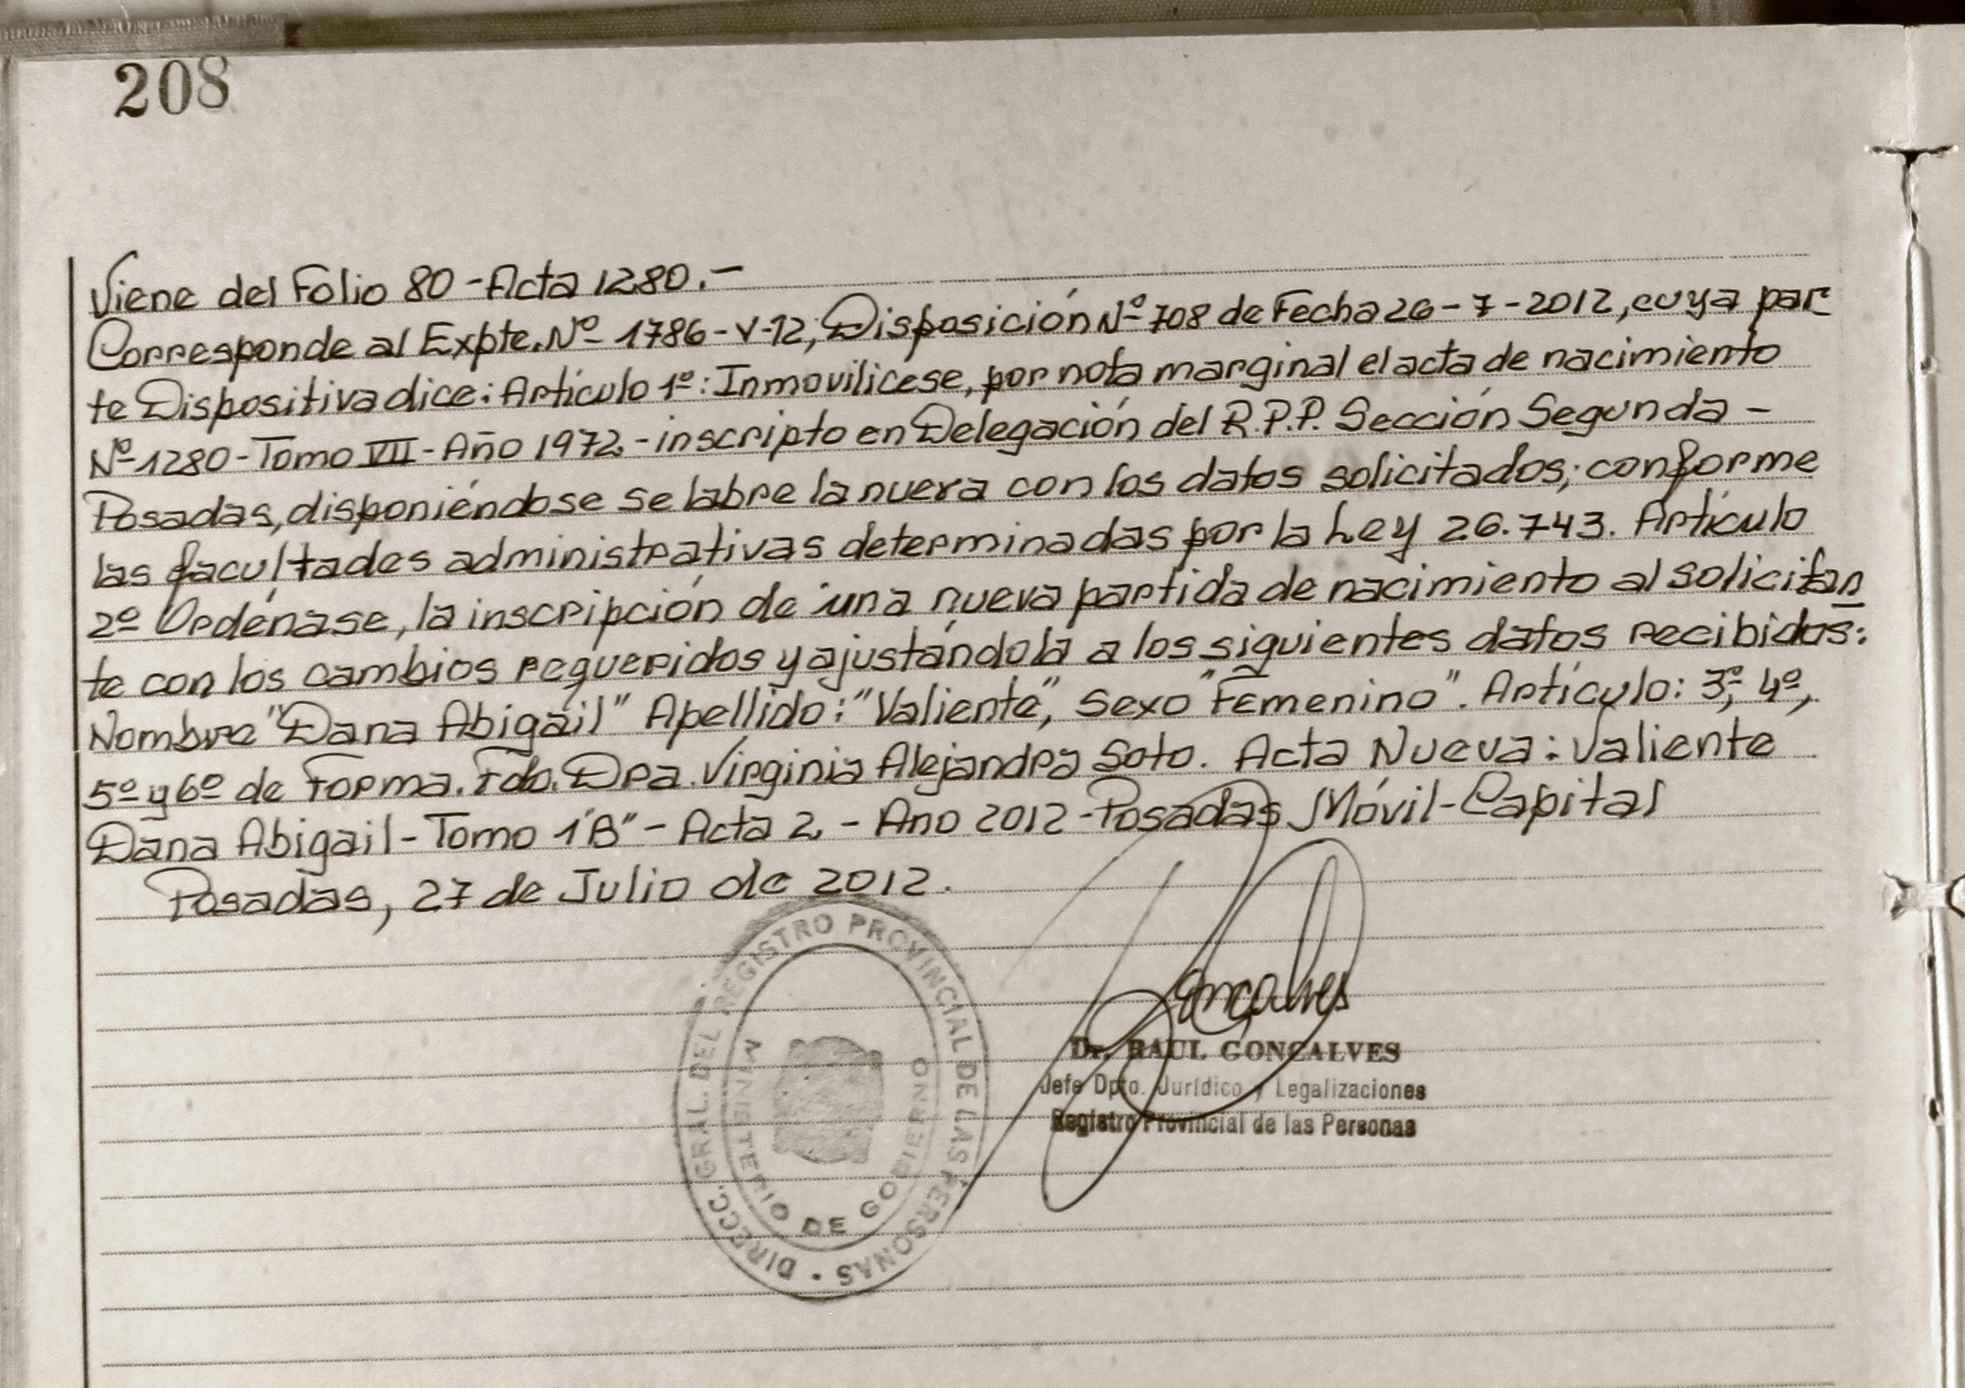 208
Viene del Folio 80 - Acta 1280.-
Corresponde al Expte. Nº 1786-V-12, Disposición Nº 708 de Fecha 26-7-2012, cuya par-
te Dispositiva dice: Artículo 1º: Inmovilícese, por nota marginal el acta de nacimiento
Nº 1280 - Tomo VII - Año 1972 - inscripto en Delegación del R.P.P. Sección Segunda -
Posadas, disponiéndose se labre la nueva con los datos solicitados; conforme
las facultades administrativas determinadas por la Ley 26.743. Artículo
2º Ordénase, la inscripción de una nueva partida de nacimiento al solicitan
te con los cambios requeridos y ajustándola a los siguientes datos recibidos:
Nombre "Dana Abigail" Apellido: "Valiente", Sexo "Femenino". Artículo: 3º, 4º,
5º y 6º de Forma. Fdo. Dra. Virginia Alejandra Soto. Acta Nueva: Valiente
Dana Abigail - Tomo 1"B" - Acta 2 - Ano 2012 - Posadas Móvil - Capital
Posadas, 27 de Julio de 2012.
DIRECC. GRAL. DEL REGISTRO PROVINCIAL DE LAS PERSONAS
MINISTERIO DE GOBIERNO
Goncalves
Dr. RAUL GONCALVES
Jefe Dpto. Jurídico y Legalizaciones
Registro Provincial de las Personas